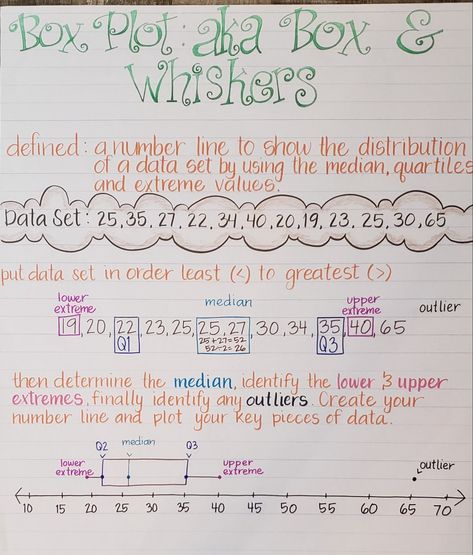 Box Plot: aka Box &
Whiskers
defined: a number line to show the distribution
of a data set by using the median, quartiles
and extreme values.
Data Set: 25, 35, 27, 22, 34, 40, 20, 19, 23. 25, 30, 65
put data set in order least (<) to greatest (>)
lower extreme median upper extreme outlier
19, 20, 22, 23, 25, 25, 27, 30, 34, 35, 40, 65
Q1 25+27=52 Q3
52÷2=26
then determine the median, identify the lower & upper
extremes, finally identify any outliers. Create your
number line and plot your key pieces of data.
Q2 median Q3
lower extreme upper extreme outlier
10 15 20 25 30 35 40 45 50 55 60 65 70